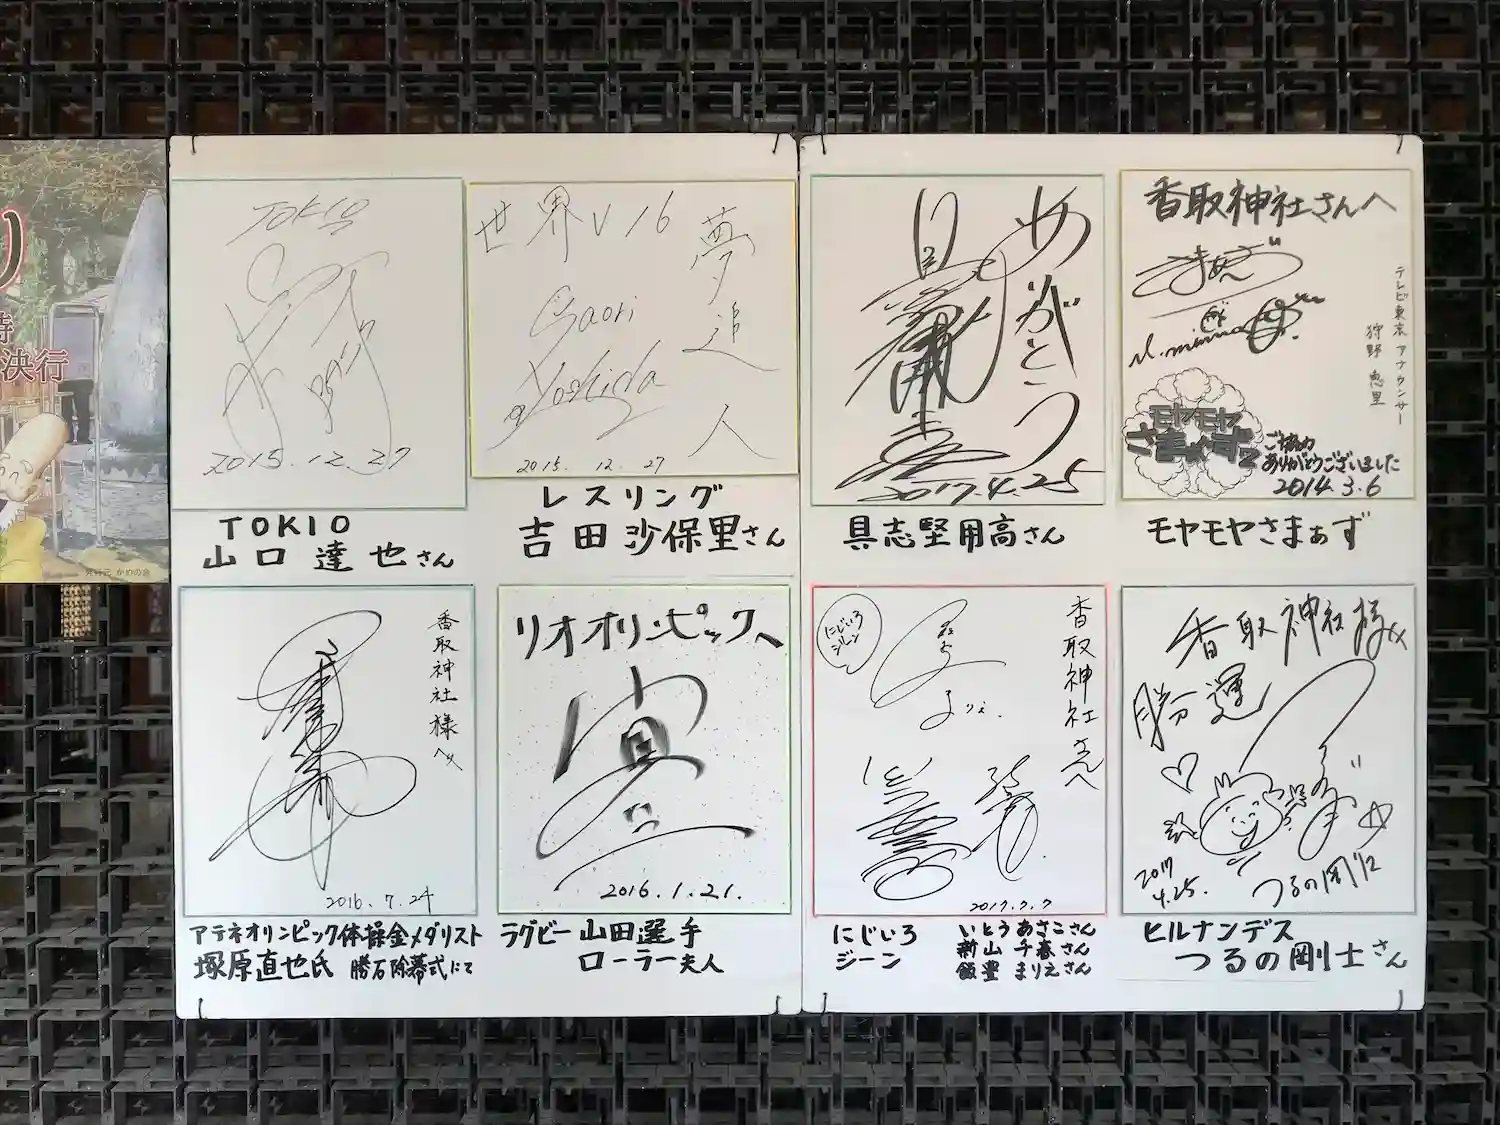 り
決行
発行元 かめの会
TOKIO
2015.12.27
TOKIO
山口達也さん
世界V16
夢追人
Saori
Yoshida
2015. 12. 27
レスリング
吉田沙保里さん
ありがとう
具志堅用高
2017.4.25
具志堅用高さん
香取神社さんへ
テレビ東京 アナウンサー
狩野 恵里
モヤモヤ
さまぁ~ず2
ご協力
ありがとうございました
2014.3.6
モヤモヤさまぁず
香取神社様へ
2016.7.24
アテネオリンピック体操金メダリスト
塚原直也氏 勝石除幕式にて
リオオリンピックへ
2016.1.21.
ラグビー山田選手
ローラー夫人
にじいろ
ジーン
香取神社さんへ
まりえ.
2017.7.7
にじいろ
ジーン
いとうあさこさん
新山 千春さん
飯豊 まりえさん
香取神社様
勝運
2017
4.25.
つるの剛士
ヒルナンデス
つるの剛士さん